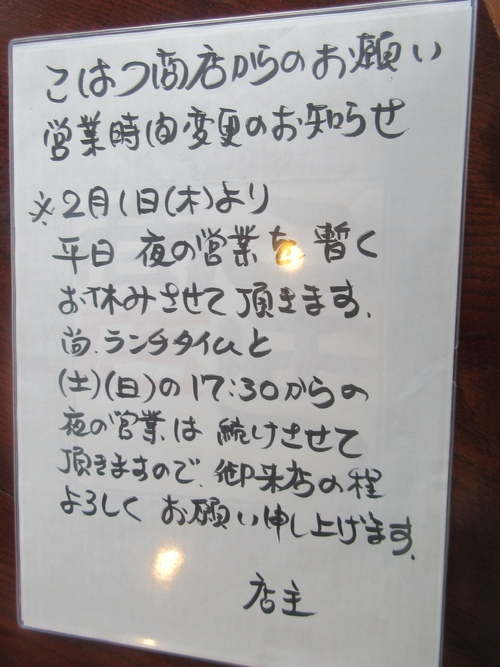 こはつ商店からのお願い
営業時間変更のお知らせ
※2月1日(木)より
平日 夜の営業を 暫く
お休みさせて頂きます.
尚.ランチタイムと
(土)(日)の17:30からの
夜の営業は 続けさせて
頂きますので.御来店の程
よろしく お願い申し上げます.
店主